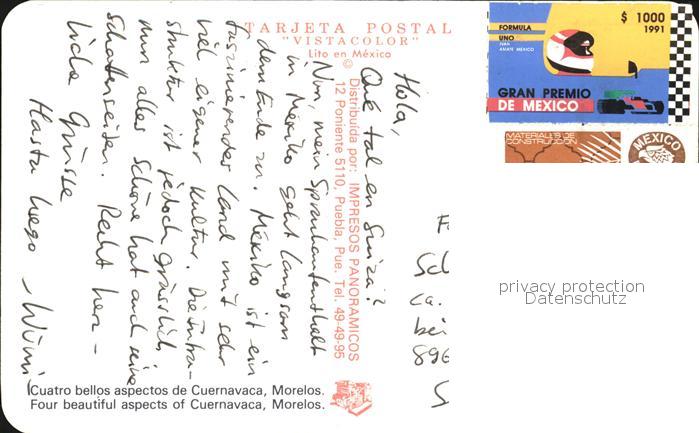 TARJETA POSTAL
"VISTACOLOR"
Lito en México
©
Distribuida por: IMPRESOS PANORAMICOS
12 Poniente 5110, Puebla, Pue. Tel. 49-49-95
Hola,
Qué tal en Suiza?
Nun, mein Sprachaufenthalt
in Mexiko geht langsam
dem Ende zu. Mexiko ist ein
faszinierendes Land mit sehr
viel eigener Kultur. Die Infra-
struktur ist jedoch grässlich
nun alles Schöne hat auch seine
Schattenseiten. Recht herz-
liche Grüsse
Hasta luego
Cuatro bellos aspectos de Cuernavaca, Morelos.
Four beautiful aspects of Cuernavaca, Morelos.
FORMULA
UNO
IVAN
AMATE MEXICO
$ 1000
1991
GRAN PREMIO
DE MEXICO
MATERIALES DE
CONSTRUCCION
MEXICO
ca.
bei
896
privacy protection
Datenschutz